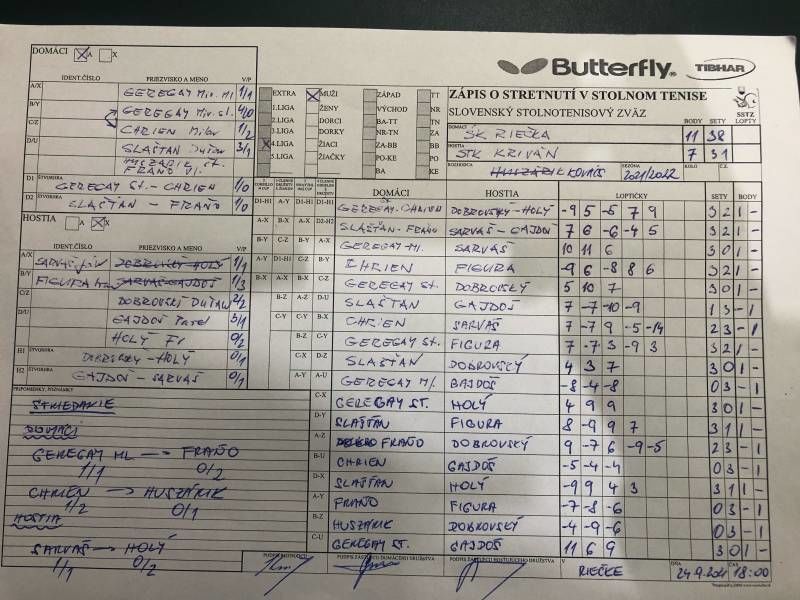 DOMÁCI A X
Butterfly TIBHAR
IDENT.ČÍSLO PRIEZVISKO A MENO V/P
A/X GEREGAY Mir. Ml 1/1
B/Y GEREGAY Mir. st. 4/0
C/Z CHRIEN Milov 1/2
D/U SLAŠŤAN Dušan 3/1
HUSZÁRIK st.
FRAŇO Vl.
D1 ŠTVORHRA GEREGAY St. - CHRIEN 1/0
D2 SLAŠŤAN - FRAŇO 1/0
EXTRA MUŽI ZÁPAD TT
1.LIGA ŽENY VÝCHOD NR
2.LIGA DORCI BA-TT TN
3.LIGA DORKY NR-TN ZA
4.LIGA ŽIACI ZA-BB BB
5.LIGA ŽIAČKY PO-KE PO
BA KE
ZÁPIS O STRETNUTÍ V STOLNOM TENISE
SLOVENSKÝ STOLNOTENISOVÝ ZVÄZ
SSTZ
BODY SETY LOPTY
DOMÁCI ŠK RIEČKA 11 38
HOSTIA STK KRIVÁŇ 7 31
ROZHODCA SEZÓNA 2021/2022 KOLO Č.Z.
HOSTIA A X
IDENT.ČÍSLO PRIEZVISKO A MENO V/P
A/X SARVAŠ 1/1
B/Y FIGURA 1/3
C/Z DOBROVSKÝ DUŠAN 2/2
D/U GAJDOŠ 3/1
HOLÝ Fr 0/2
H1 ŠTVORHRA DOBROVSKÝ - HOLÝ 0/1
H2 ŠTVORHRA GAJDOŠ - SARVAŠ 0/1
DOMÁCI HOSTIA LOPTIČKY SETY BODY
D1-H1 A-Y D1-H1 D1-H1 GEREGAY - CHRIEN DOBROVSKÝ - HOLÝ -9 5 -5 7 9 3 2 1 -
A-X B-X A-X D2-H2 SLAŠŤAN - FRAŇO SARVAŠ - GAJDOŠ 7 6 -6 -4 5 3 2 1 -
GEREGAY Ml. SARVAŠ 10 11 6 3 0 1 -
CHRIEN FIGURA -9 6 -8 8 6 3 2 1 -
GEREGAY St. DOBROVSKÝ 5 10 7 3 0 1 -
SLAŠŤAN GAJDOŠ 7 -7 -10 -9 1 3 - 1
CHRIEN SARVAŠ 7 -7 9 -5 -14 2 3 - 1
GEREGAY St. FIGURA 7 -7 3 -9 3 3 2 1 -
SLAŠŤAN DOBROVSKÝ 4 3 7 3 0 1 -
GEREGAY Ml. GAJDOŠ -8 -4 -8 0 3 - 1
C-X GEREGAY ST. HOLÝ 4 9 9 3 0 1 -
D-Y SLAŠŤAN FIGURA 8 -9 9 7 3 1 1 -
A-Z FRAŇO DOBROVSKÝ 9 -7 6 -9 -5 2 3 - 1
B-U CHRIEN GAJDOŠ -5 -4 -4 0 3 - 1
D-X SLAŠŤAN HOLÝ -9 9 4 3 3 1 1 -
A-Y FRAŇO FIGURA -7 -8 -6 0 3 - 1
B-Z HUSZÁRIK DOBROVSKÝ -4 -9 -6 0 3 - 1
C-U GEREGAY ST. GAJDOŠ 11 6 9 3 0 1 -
PRIPOMIENKY, POZNÁMKY
STRIEDANIE
DOMÁCI
GEREGAY ML → FRAŇO
1/1 0/2
CHRIEN → HUSZÁRIK
1/2 0/1
HOSTIA
SARVAŠ → HOLÝ
1/1 0/2
PODPIS ROZHODCU PODPIS ZÁSTUPCU DOMÁCEHO DRUŽSTVA PODPIS ZÁSTUPCU HOSŤUJÚCEHO DRUŽSTVA V RIEČKE DŇA 24.9.2021 ČAS 18:00